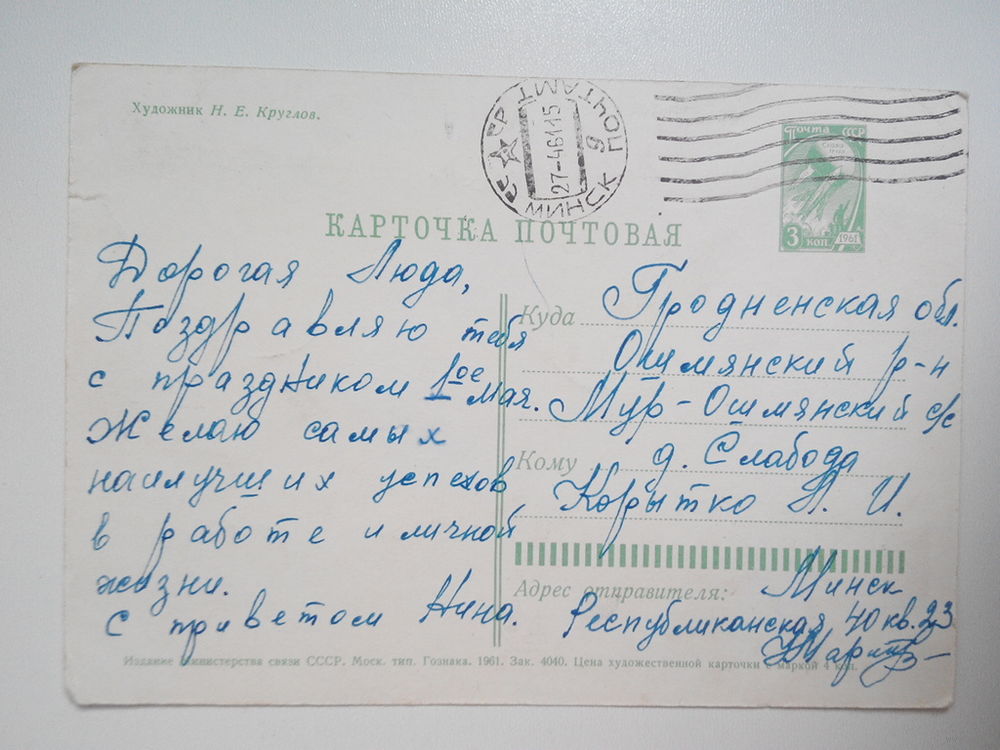 Художник Н. Е. Круглов.
СССР МИНСК ПОЧТАМТ 9
27-4 61 15
Почта СССР
3 коп 1961
КАРТОЧКА ПОЧТОВАЯ
Дорогая Люда,
Поздравляю тебя
с праздником 1ое мая.
Желаю самых
наилучших успехов
в работе и личной
жизни.
с приветом Нина.
Куда Гродненская обл.
Ошмянский р-н
Мур-Ошмянский с/с
Кому д. Слабода
Корытко Л. И.
Адрес отправителя: Минск
Республиканская, 40 кв. 23
Издание Министерства связи СССР. Моск. тип. Гознака. 1961. Зак. 4040. Цена художественной карточки с маркой 4 коп.